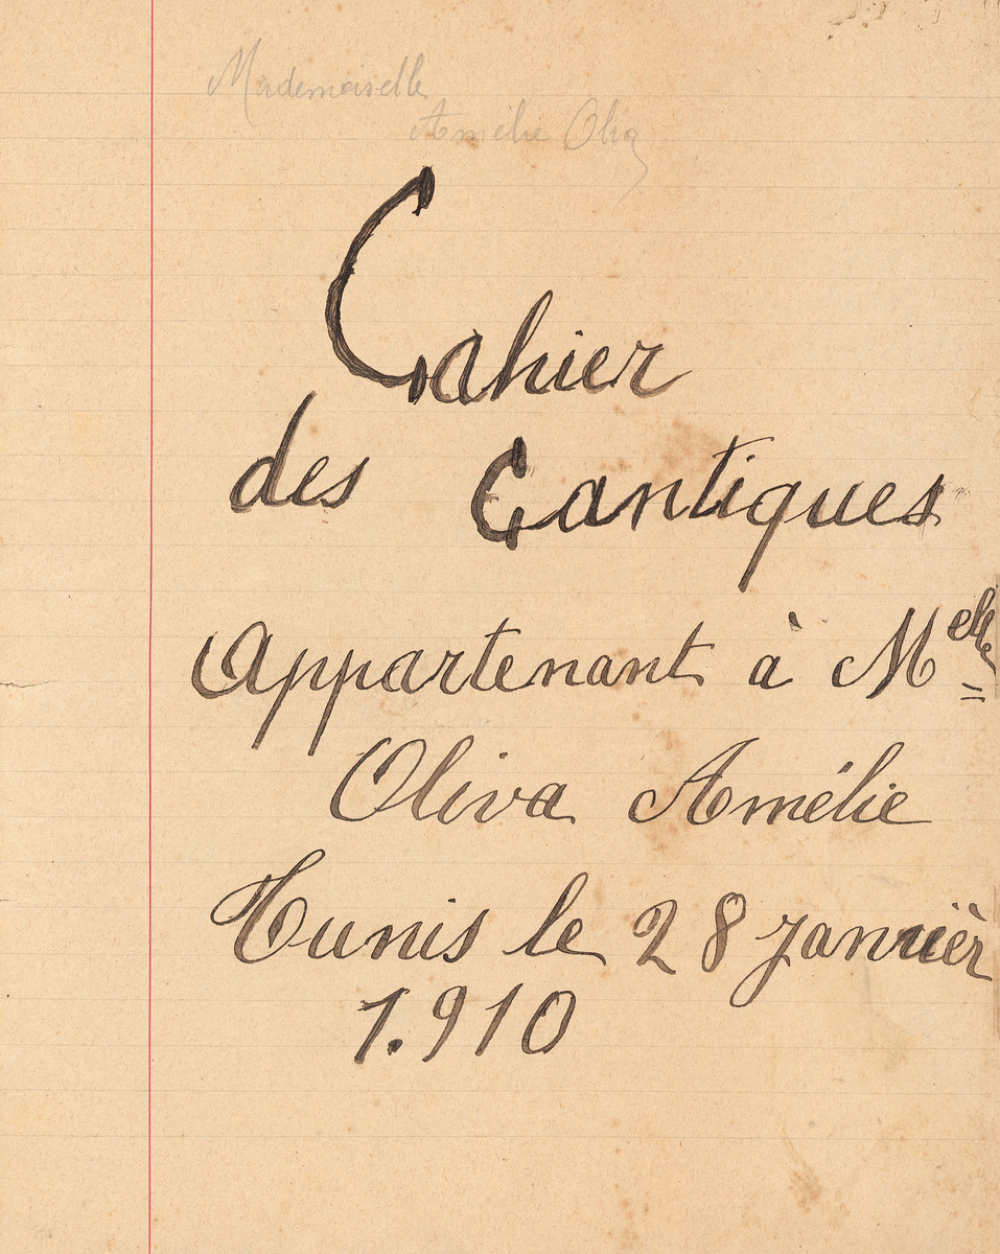 Mademoiselle
Amélie
Cahier
des Cantiques
Appartenant à Melle
Oliva Amélie
Tunis le 28 janvier
1.910